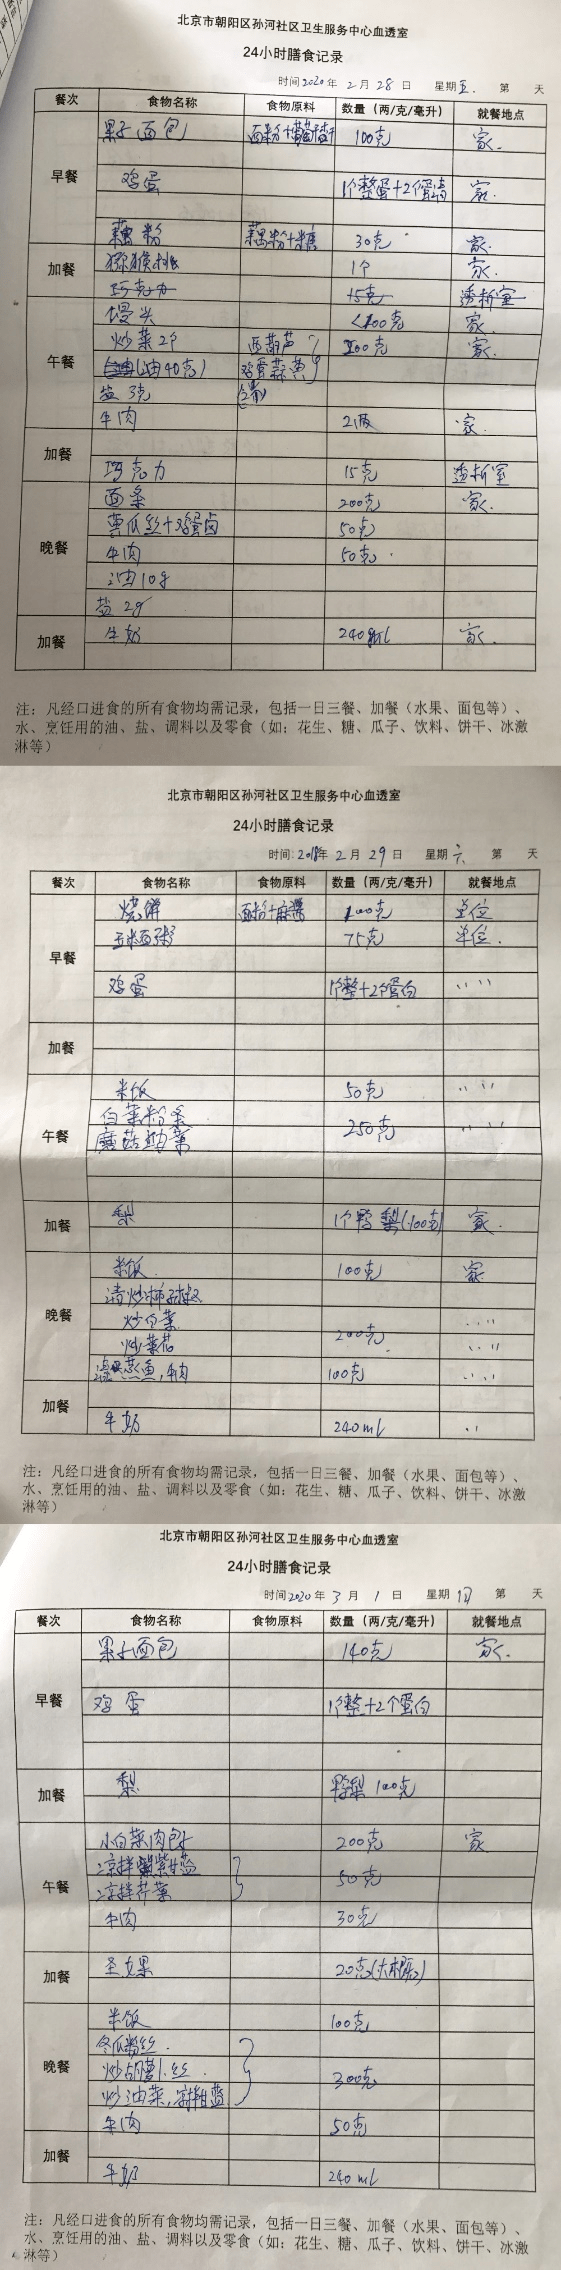 北京市朝阳区孙河社区卫生服务中心血透室
24小时膳食记录
时间2020年2月28日 星期五. 第 天
餐次 食物名称 食物原料 数量（两/克/毫升） 就餐地点
果子面包 100克 家.
早餐 鸡蛋 1个整蛋+2个蛋清 家.
藕粉 藕粉+糖 30克 家.
加餐 猕猴桃 1个 家.
巧克力 15克 透析室
馒头 <100克 家.
炒菜2个 西葫芦 200克 家.
午餐 (油40克) 鸡蛋蒜黄
盐3克
牛肉 家.
加餐
巧克力 15克 透析室
面条 200克 家.
黄瓜丝+鸡蛋卤 50克
晚餐 牛肉 50克
油10g
盐2g
加餐 牛奶 240ml 家.
注：凡经口进食的所有食物均需记录，包括一日三餐、加餐（水果、面包等）、
水、烹饪用的油、盐、调料以及零食（如：花生、糖、瓜子、饮料、饼干、冰激
淋等）
北京市朝阳区孙河社区卫生服务中心血透室
24小时膳食记录
时间:2018年2月29日 星期六 第 天
餐次 食物名称 食物原料 数量（两/克/毫升） 就餐地点
烧饼 面粉+麻酱 100克 单位
玉米面粥 75克 单位.
早餐
鸡蛋 1个整+2个蛋白 〃
加餐
米饭 50克 〃
白菜粉条
午餐 蘑菇油菜 250克 〃
加餐 梨 1个鸭梨(100克) 家.
米饭. 100克 家
清炒柿子椒
晚餐 炒白菜 〃
炒菜花 200克 〃
清蒸鱼,牛肉 100克 〃
加餐
牛奶 240ml 〃
注：凡经口进食的所有食物均需记录，包括一日三餐、加餐（水果、面包等）、
水、烹饪用的油、盐、调料以及零食（如：花生、糖、瓜子、饮料、饼干、冰激
淋等）
北京市朝阳区孙河社区卫生服务中心血透室
24小时膳食记录
时间2020年3月1日 星期日 第 天
餐次 食物名称 食物原料 数量（两/克/毫升） 就餐地点
果子面包 140克 家.
早餐 鸡蛋 1个整+2个蛋白
加餐 梨 鸭梨 100克
小白菜肉包子 200克 家
凉拌紫甘蓝
午餐 凉拌芹菜 50克
牛肉 30克
加餐 圣女果 20克
米饭 100克
冬瓜粉丝.
晚餐 炒胡萝卜丝. 300克
炒油菜,紫甘蓝
牛肉 50克
加餐
牛奶 240ml
注：凡经口进食的所有食物均需记录，包括一日三餐、加餐（水果、面包等）、
水、烹饪用的油、盐、调料以及零食（如：花生、糖、瓜子、饮料、饼干、冰激
淋等）